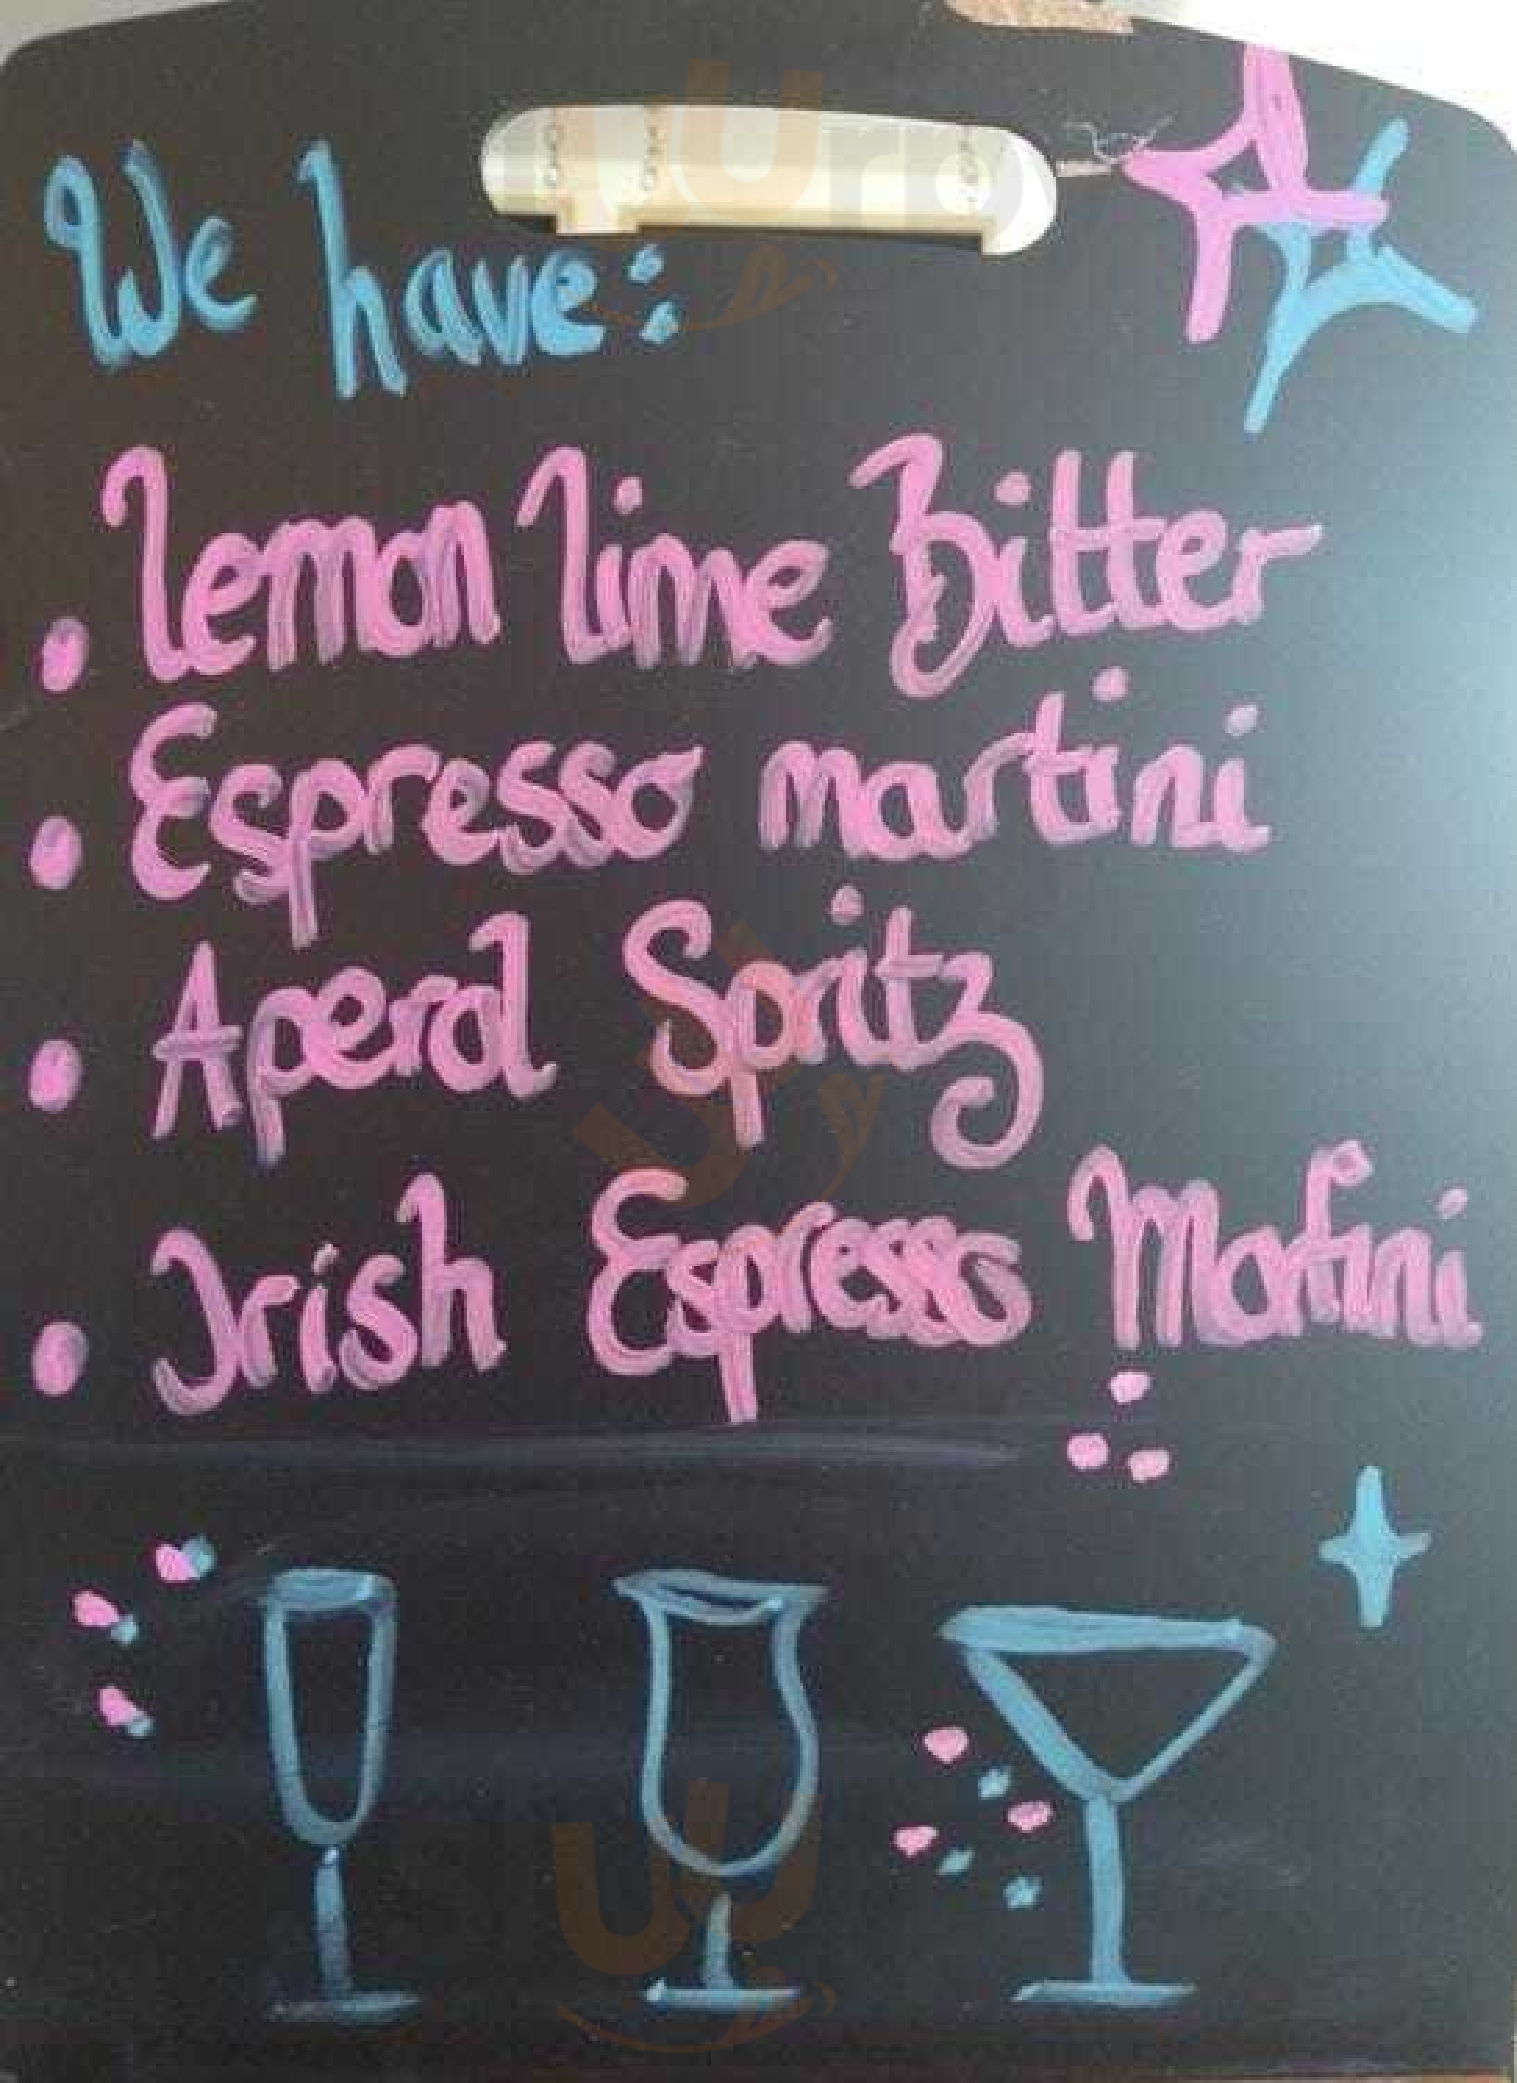 We have:
• Lemon lime Bitter
• Espresso martini
• Aperol Spritz
• Irish Espresso Martini